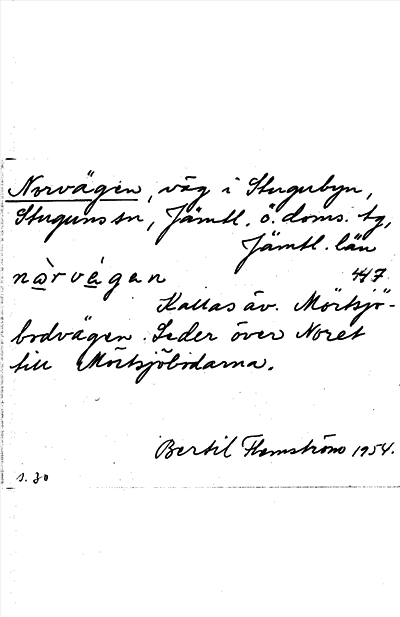 Norvägen, väg i Stugubyn,
Stuguns sn, Jämtl. ö. doms. tg,
Jämtl. län
nàrvégan 447.
Kallas äv. Mörtsjö-
bodvägen. Leder över Noret
till Mörtsjöbodarna.
Bertil Flemström 1954.
s. 30